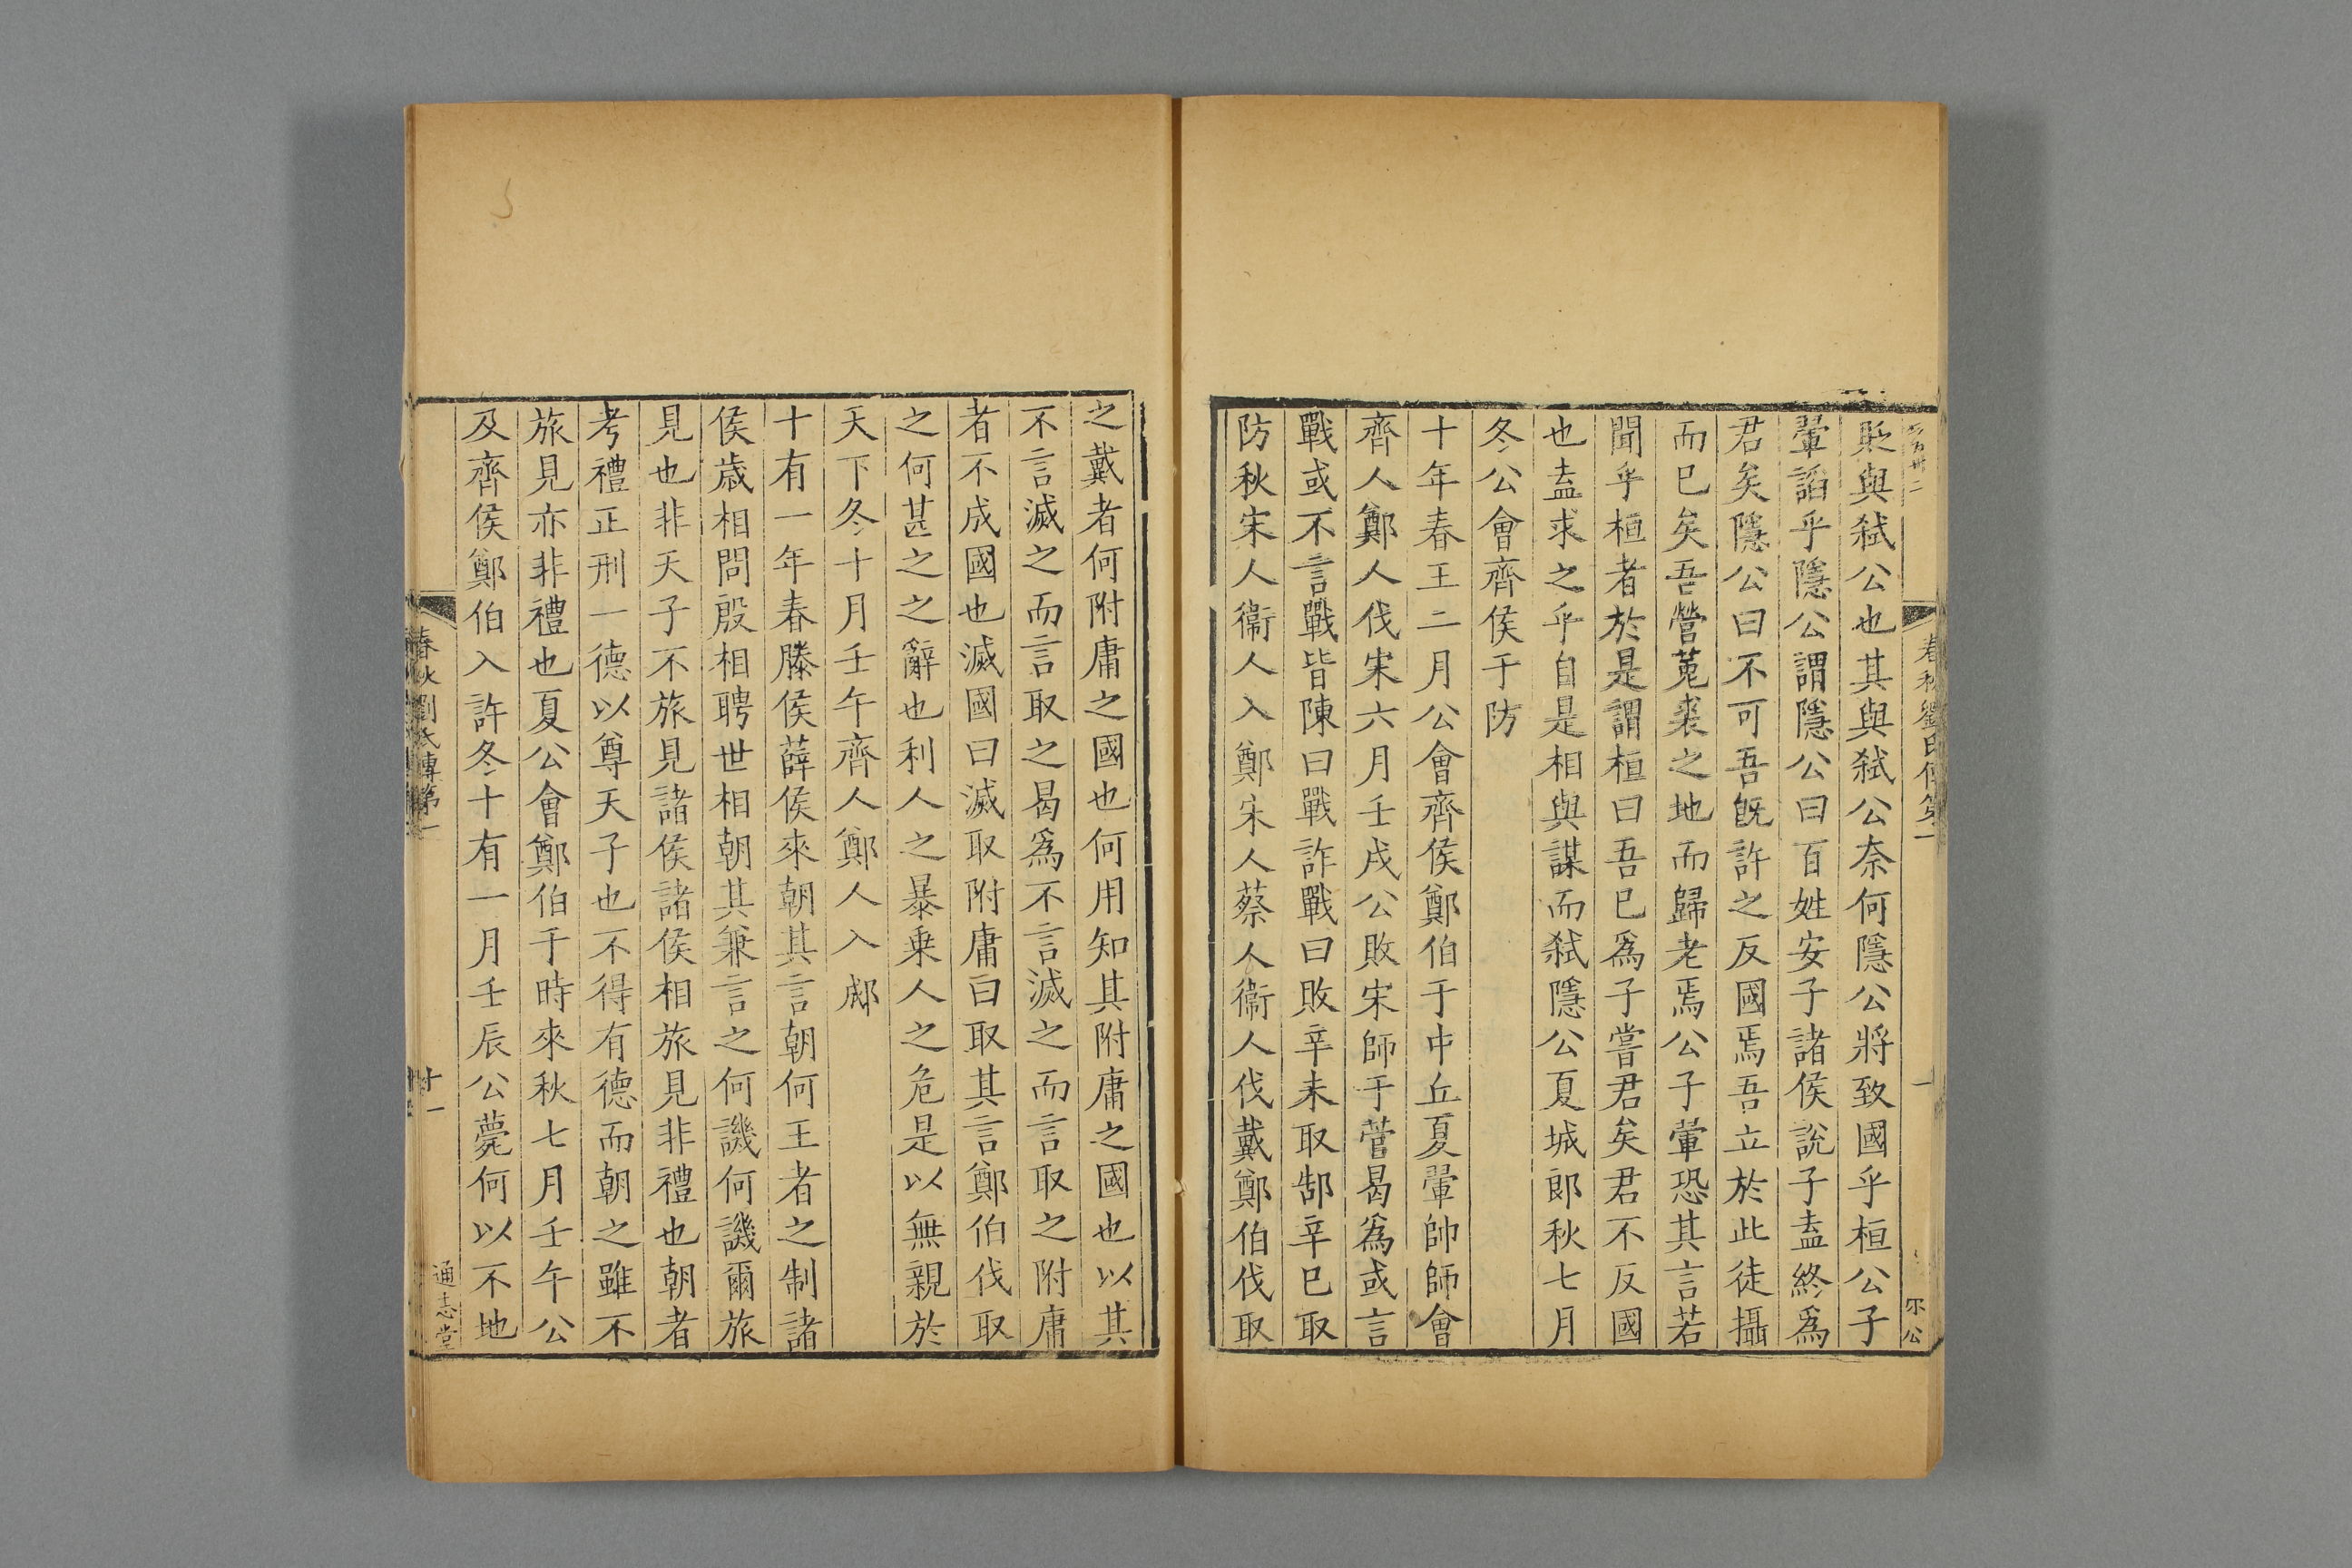 貶與弑公也其與弑公奈何隱公將致國乎桓公子
翬謟乎隱公謂隱公曰百姓安子諸侯說子盍終爲
君矣隱公曰不可吾旣許之反國焉吾立於此徒攝
而已矣吾營菟裘之地而歸老焉公子翬恐其言若
聞乎桓者於是謂桓曰吾已爲子嘗君矣君不反國
也盍求之乎自是相與謀而弑隱公夏城郎秋七月
冬公會齊侯于防
十年春王二月公會齊侯鄭伯于中丘夏翬帥師會
齊人鄭人伐宋六月壬戌公敗宋師于菅曷爲或言
戰或不言戰皆陳曰戰詐戰曰敗辛未取郜辛巳取
防秋宋人衞人入鄭宋人蔡人衞人伐戴鄭伯伐取
之戴者何附庸之國也何用知其附庸之國也以其
不言滅之而言取之曷爲不言滅之而言取之附庸
者不成國也滅國曰滅取附庸曰取其言鄭伯伐取
之何甚之之辭也利人之暴乗人之危是以無親於
天下冬十月壬午齊人鄭人入郕
十有一年春滕侯薛侯來朝其言朝何王者之制諸
侯歲相問殷相聘世相朝其兼言之何譏何譏爾旅
見也非天子不旅見諸侯諸侯相旅見非禮也朝者
考禮正刑一德以尊天子也不得有德而朝之雖不
旅見亦非禮也夏公會鄭伯于時來秋七月壬午公
及齊侯鄭伯入許冬十有一月壬辰公薨何以不地
春秋劉氏傳第一
十一
通志堂